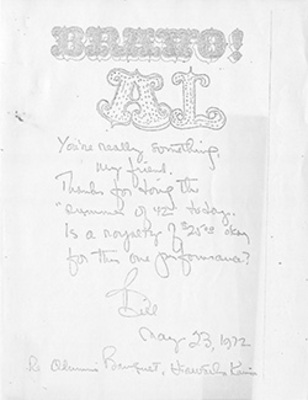 BRAVO!
AL
You're really something,
my friend.
Thanks for doing the
"Summer of 42" today.
Is a royalty of $25.00 okay
for this one performance?
Bill
May 23, 1972
Re Alumni Banquet,